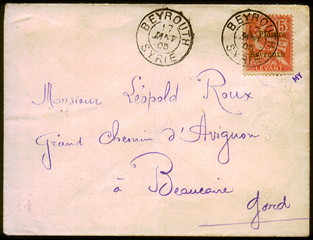 BEYROUTH
17
JANV
05
SYRIE
BEYROUTH
05
SYRIE
15
LEVANT
MY
Monsieur Léopold Roux
Grand Chemin d'Avignon
à Beaucaire
Gard